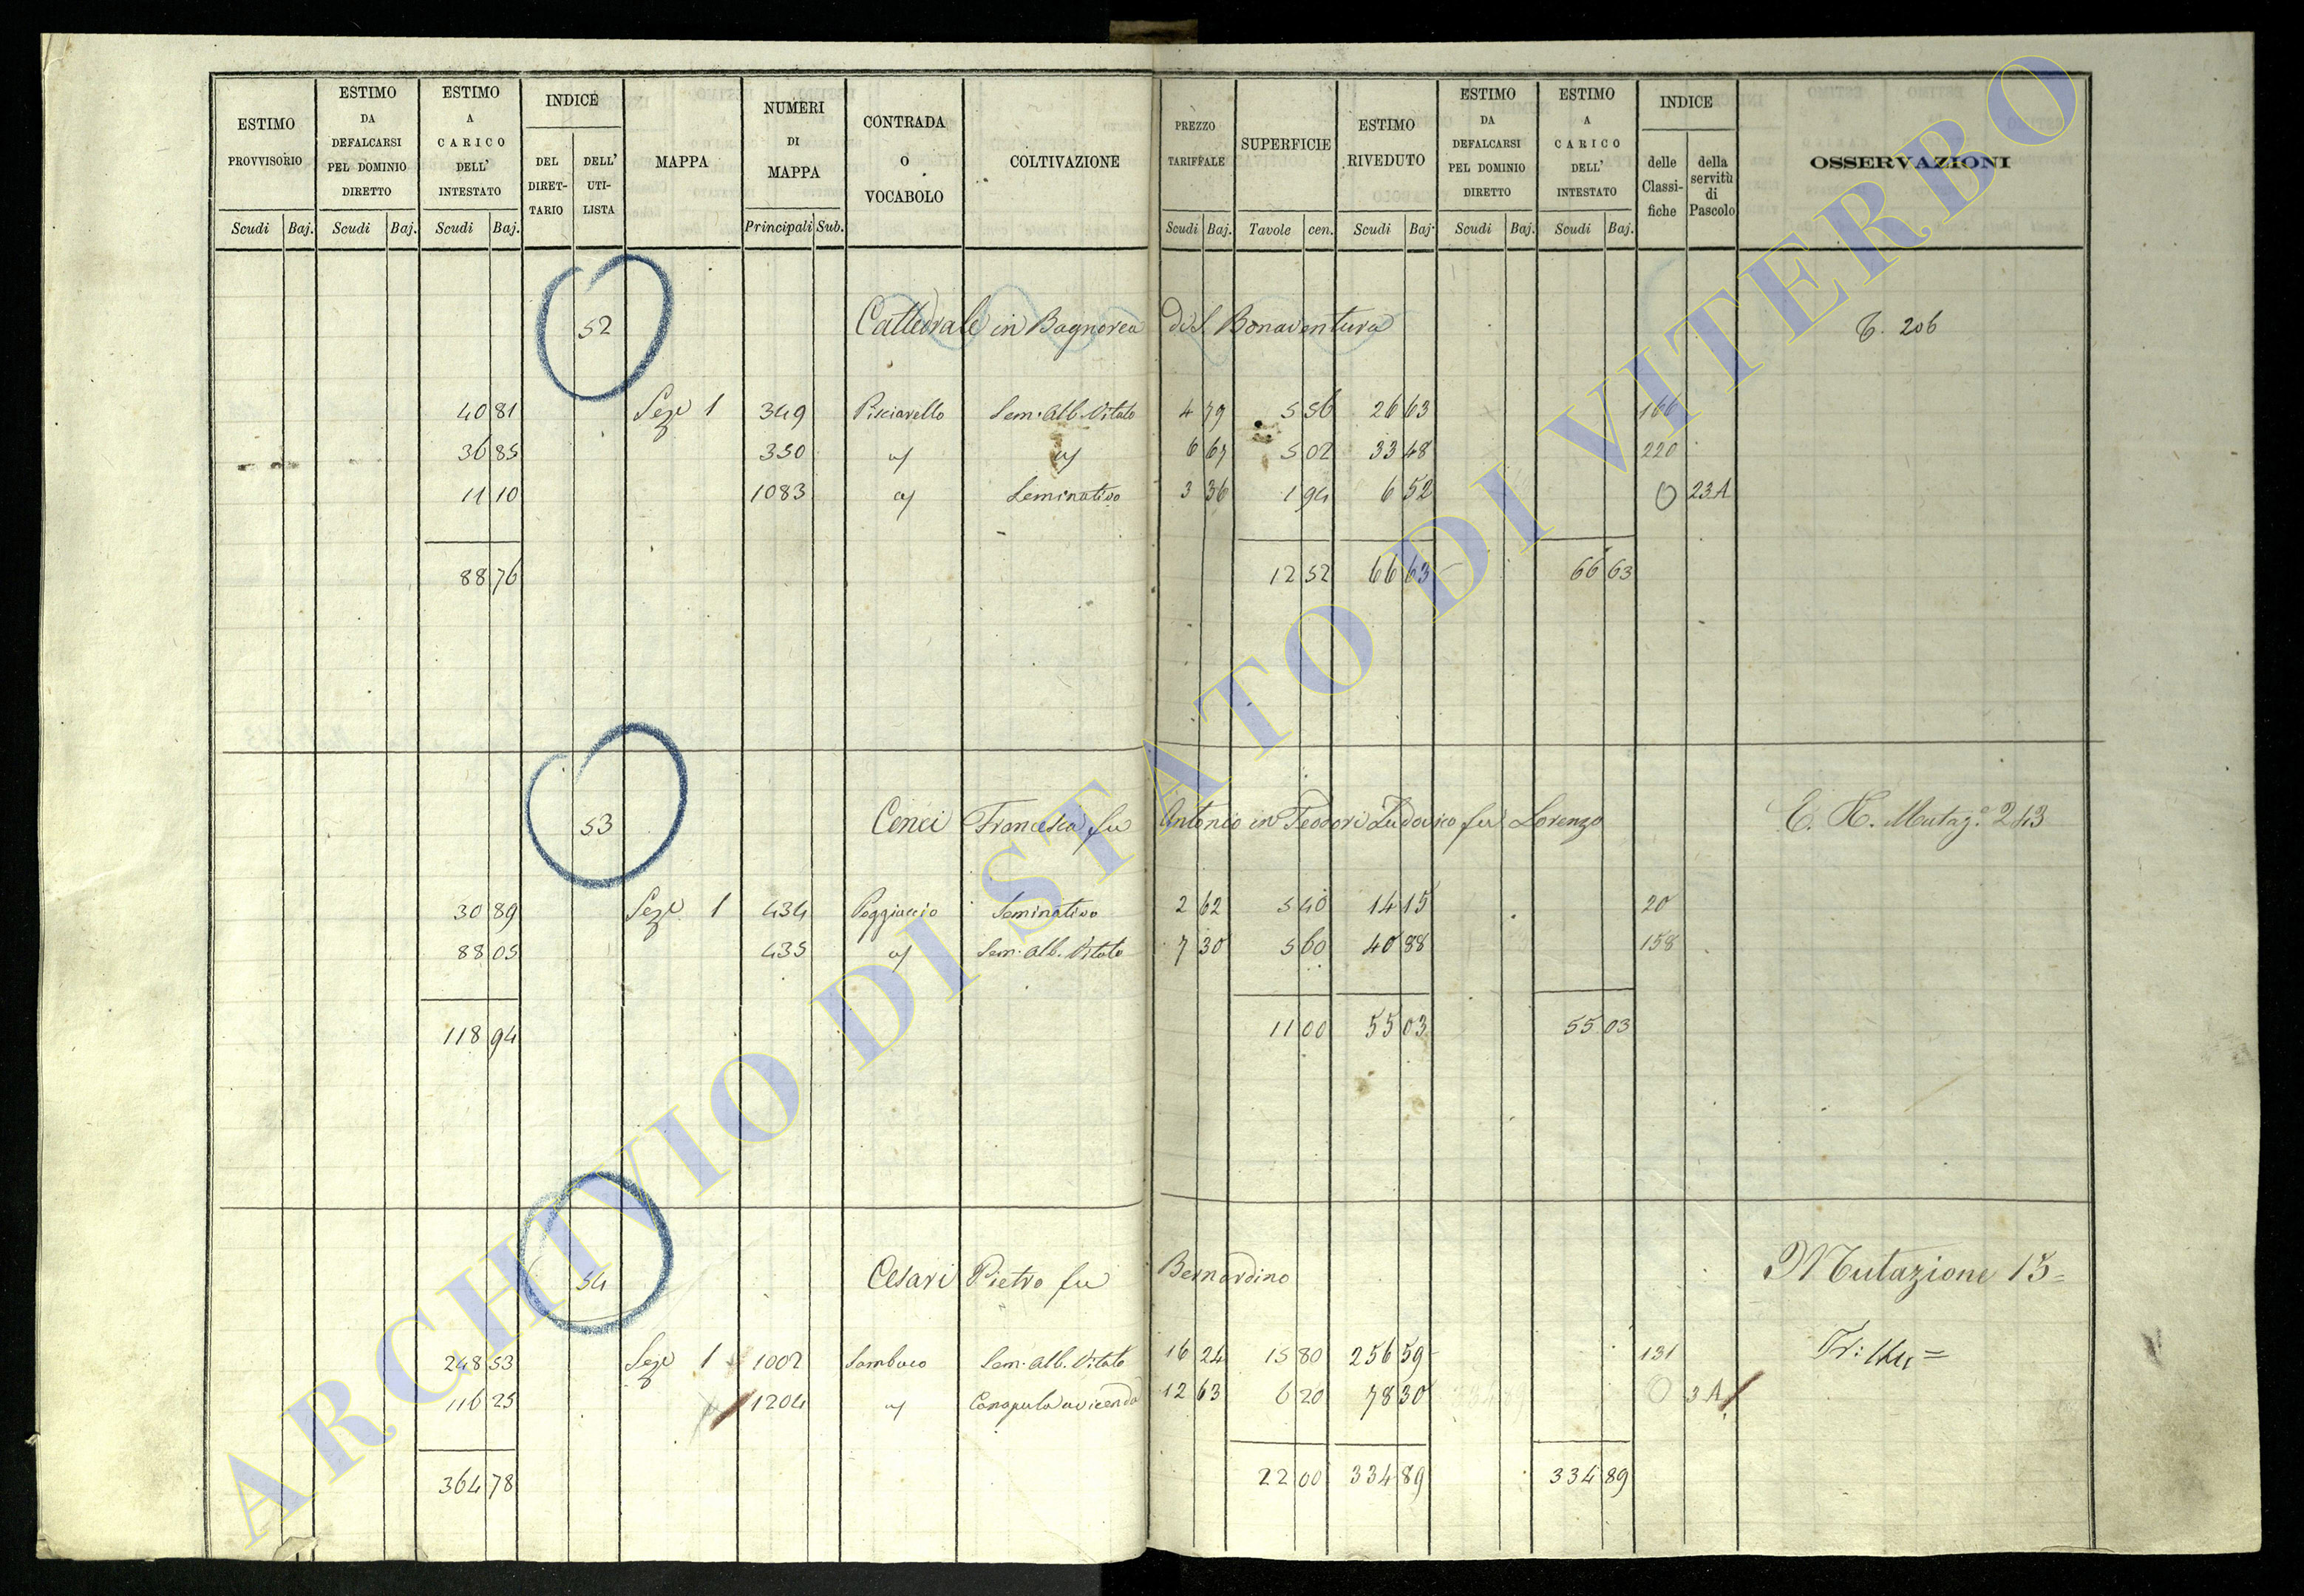 ESTIMO PROVVISORIO
ESTIMO DA DEFALCARSI PEL DOMINIO DIRETTO
ESTIMO A CARICO DELL' INTESTATO
INDICE
DEL DIRET-TARIO
DELL' UTI-LISTA
MAPPA
NUMERI DI MAPPA
CONTRADA O VOCABOLO
COLTIVAZIONE
PREZZO TARIFFALE
SUPERFICIE
ESTIMO RIVEDUTO
ESTIMO DA DEFALCARSI PEL DOMINIO DIRETTO
ESTIMO A CARICO DELL' INTESTATO
INDICE
delle Classi-fiche
della servitù di Pascolo
OSSERVAZIONI
Scudi Baj. Scudi Baj. Scudi Baj. Principali Sub. Scudi Baj. Tavole cen. Scudi Baj. Scudi Baj. Scudi Baj.
52 Cattedrale in Bagnorea di S. Bonaventura 206
40 81 Seze 1 349 Pisciarello Sem. Alb. Vitato 4 79 5 56 26 63 166
36 85 350 6 67 5 02 33 48 220
11 10 1083 Seminativo 3 36 1 94 6 52 0 23 A
88 76 12 52 66 63 66 63
53 Cenci Francesca fu Antonio in Teodori Ludovico fu Lorenzo Mutaz. 243
30 89 Seze 1 434 Poggiaccio Seminativo 2 62 5 40 14 15 20
88 05 435 Sem. Alb. Vitato 7 30 5 60 40 88 158
118 94 11 00 55 03 55 03
54 Cesari Pietro fu Bernardino Mutazione 15=
248 53 Seze 1 1002 Sambuco Sem. Alb. Vitato 16 24 15 80 256 59 131
116 25 1204 Canapula avicenda 12 63 6 20 78 30 0 3 A
364 78 22 00 334 89 334 89
ARCHIVIO DI STATO DI VITERBO